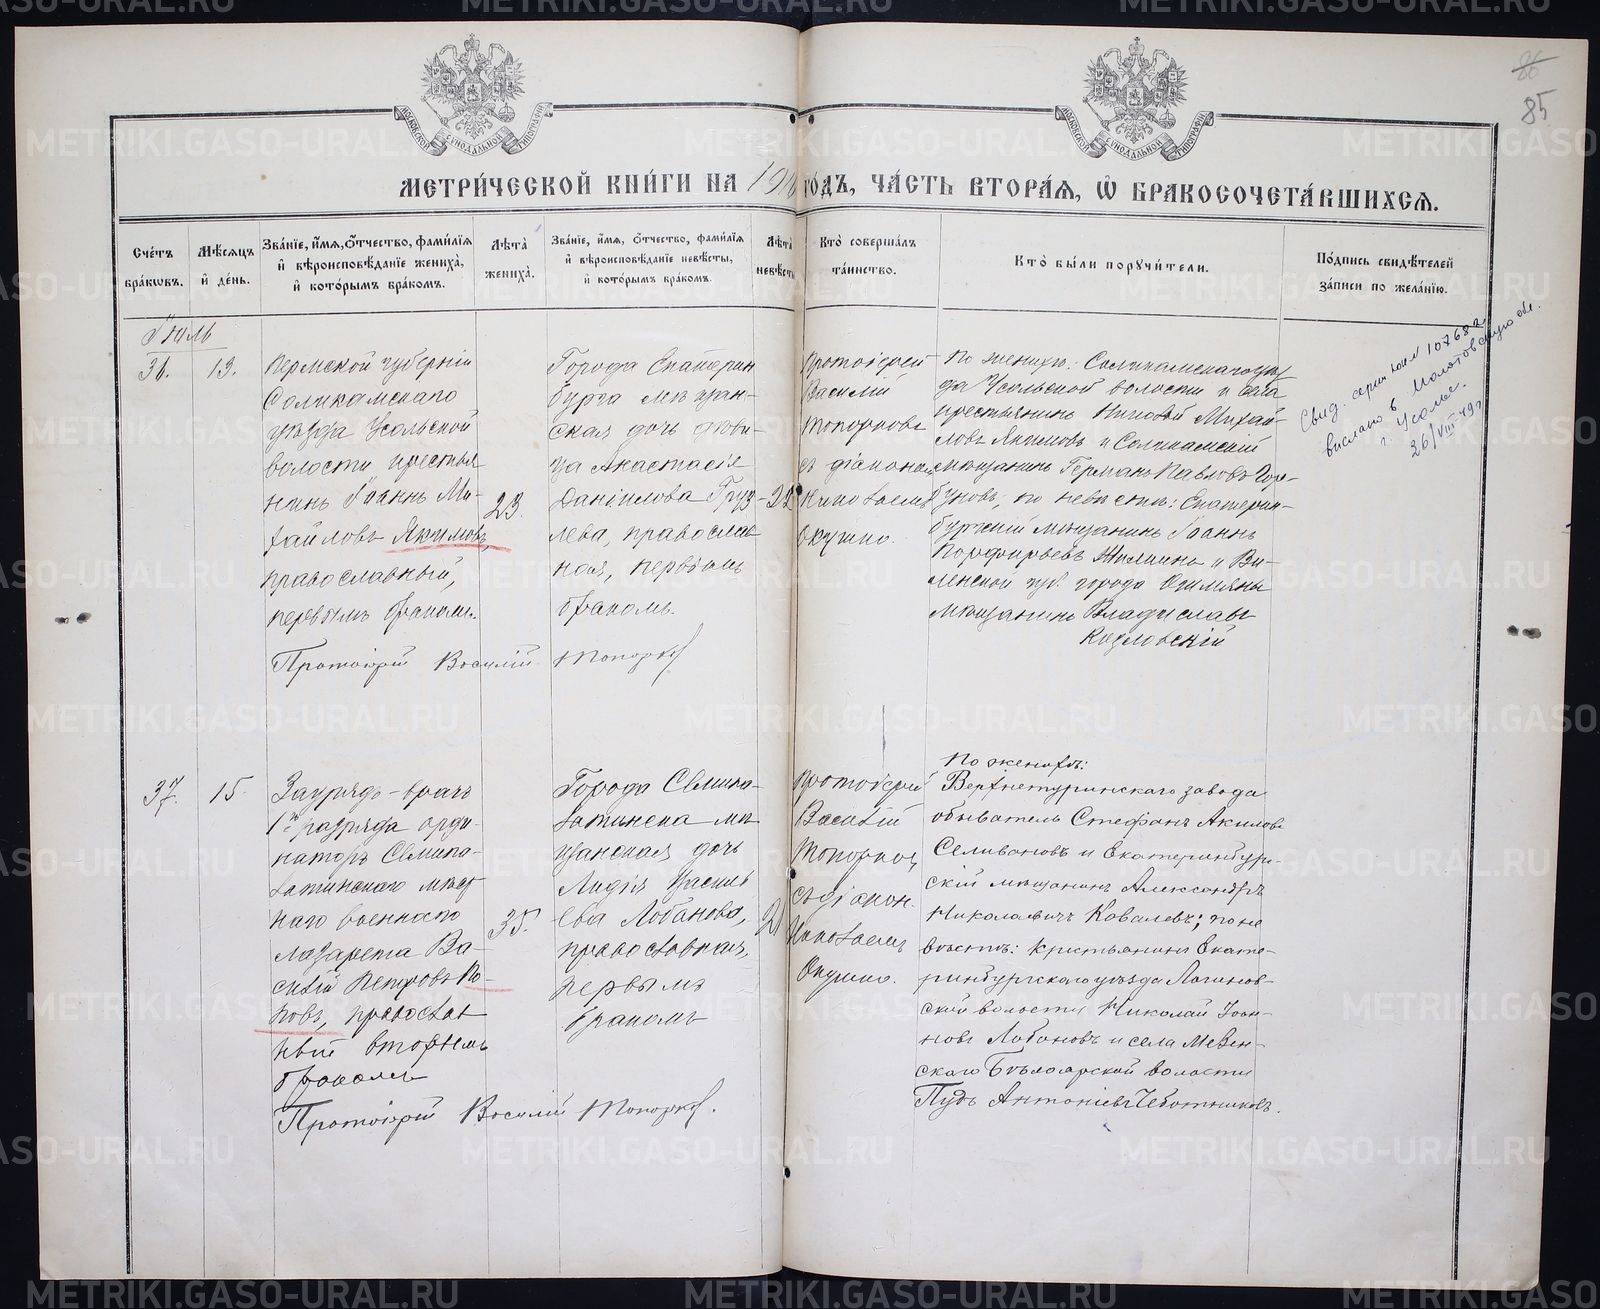 86
85
МОСКОВСКОЙ СѴНОДАЛЬНОЙ ТИПОГРАФІИ
МОСКОВСКОЙ СѴНОДАЛЬНОЙ ТИПОГРАФІИ
МЕТРИ́ЧЕСКОЙ КНИ́ГИ НА 191 ГО́ДЪ, ЧА́СТЬ ВТОРА́Я, Ѡ БРАКОСОЧЕТА́ВШИХСЯ.
Сче́тъ бра́кѡвъ.
Мѣ́сяцъ и҆ де́нь.
Зва́нїе, и҆́мя, ѻ҆́тчество, фами́лїя и҆ вѣроисповѣ́данїе жениха̀, и҆ кото́рымъ бра́комъ.
Лѣ́та жениха̀.
Зва́нїе, и҆́мя, ѻ҆́тчество, фами́лїя и҆ вѣроисповѣ́данїе невѣ́сты, и҆ кото́рымъ бра́комъ.
Лѣ́та невѣ́сты
Кто̀ соверша́лъ та́инство.
Кто̀ бы́ли порꙋчи́тели.
По́дпись свидѣ́телей за́писи по жела́нїю.
Іюль
36.
13.
Пермской губерніи
Соликамскаго
уѣзда Усольской
волости крестья
нинъ Іоаннъ Ми-
хайловъ Якимовъ,
православный,
первымъ бракомъ.
23.
Города Екатерин
бурга мѣщан-
ская дочь дѣви-
ца Анастасія
Даніилова Груз-
лева, православ
ная, первымъ
бракомъ.
22
Протоіерей
Василій
Топорковъ
съ діаконом
Николаемъ
Окулко.
По женихѣ: Соликамскаго уѣз
да Усольской волости и села
крестьянинъ Михай-
ловъ Якимовъ и Соликамскій
мѣщанинъ Германъ Павловъ Гор-
буновъ, по невѣстѣ: Екатерин-
бургскій мѣщанинъ Іоаннъ
Порфирьевъ и Ви-
ленской губ. города Ошмяны
мѣщанинъ Владиславъ
Козловскій
Свид. серии № 107682
выслано в Молотовскую обл.
г. Усолье.
26/VIII-49 г.
Протоіерей Василій Топорков
37.
15.
Заурядъ-врачъ
1го разряда орди-
наторъ Семипа-
латинскаго мѣст
наго военнаго
лазарета Ва-
силій Петровъ По-
повъ, православ
ный вторымъ
бракомъ
35.
Города Семипа-
латинска мѣ
щанская дочь
Лидія Василь
ева Лобанова,
православная,
первымъ
бракомъ
21
Протоіерей
Василій
Топорков,
съ діакон.
Николаемъ
Окулко.
По женихѣ:
Верхнетуринскаго завода
обыватель Стефанъ Акиловъ
Селивановъ и Екатеринбург-
скій мѣщанинъ Александръ
Николаевичъ Ковалевъ; по не
вѣстѣ: Крестьянинъ Екате-
ринбургскаго уѣзда Логинов-
ской волости Николай Іоан-
новъ Лобановъ и села Мезен-
скаго Бѣлоярской волости
Пудъ Антоніевъ Чеботниковъ.
Протоіерей Василій Топорков.
METRIKI.GASO-URAL.RU